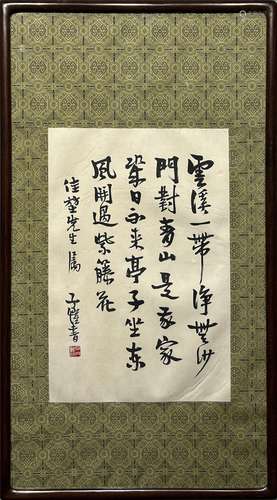 雲溪一帶淨無沙
門對青山是我家
日不來亭子坐東
風開過紫籐花
佳先生屬
子愷書